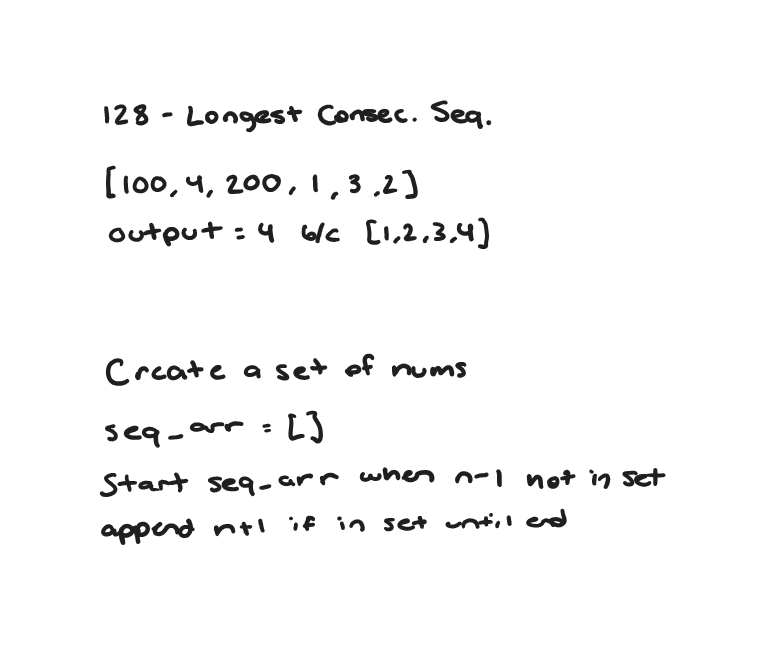 128 - Longest Consec. Seq.
[100, 4, 200, 1, 3, 2]
output = 4 b/c [1,2,3,4]
Create a set of nums
seq_arr = []
Start seq_arr when n-1 not in set
append n+1 if in set until end